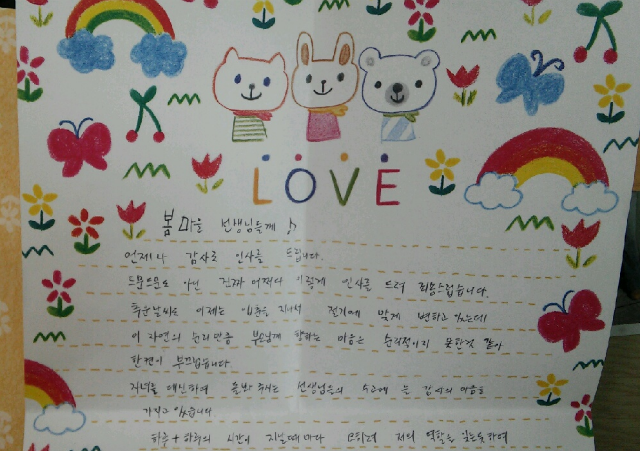 LOVE
봄마을 선생님들께
언제나 감사로 인사를 드립니다.
드문드문도 아닌 진짜 어쩌다 이렇게 인사를 드려 죄송스럽습니다.
추운날씨도 이제는 입춘을 지나서 절기에 맞게 변하고 있는데
이 자연의 순리만큼 부모님께 향하는 마음은 순리적이지 못한것 같아
한켠이 부끄럽습니다
자녀를 대신하여 돌봐 주시는 선생님들의 수고에 늘 감사의 마음을
가지고 있습니다
하루 + 하루의 시간이 지날때마다 저의 역할을